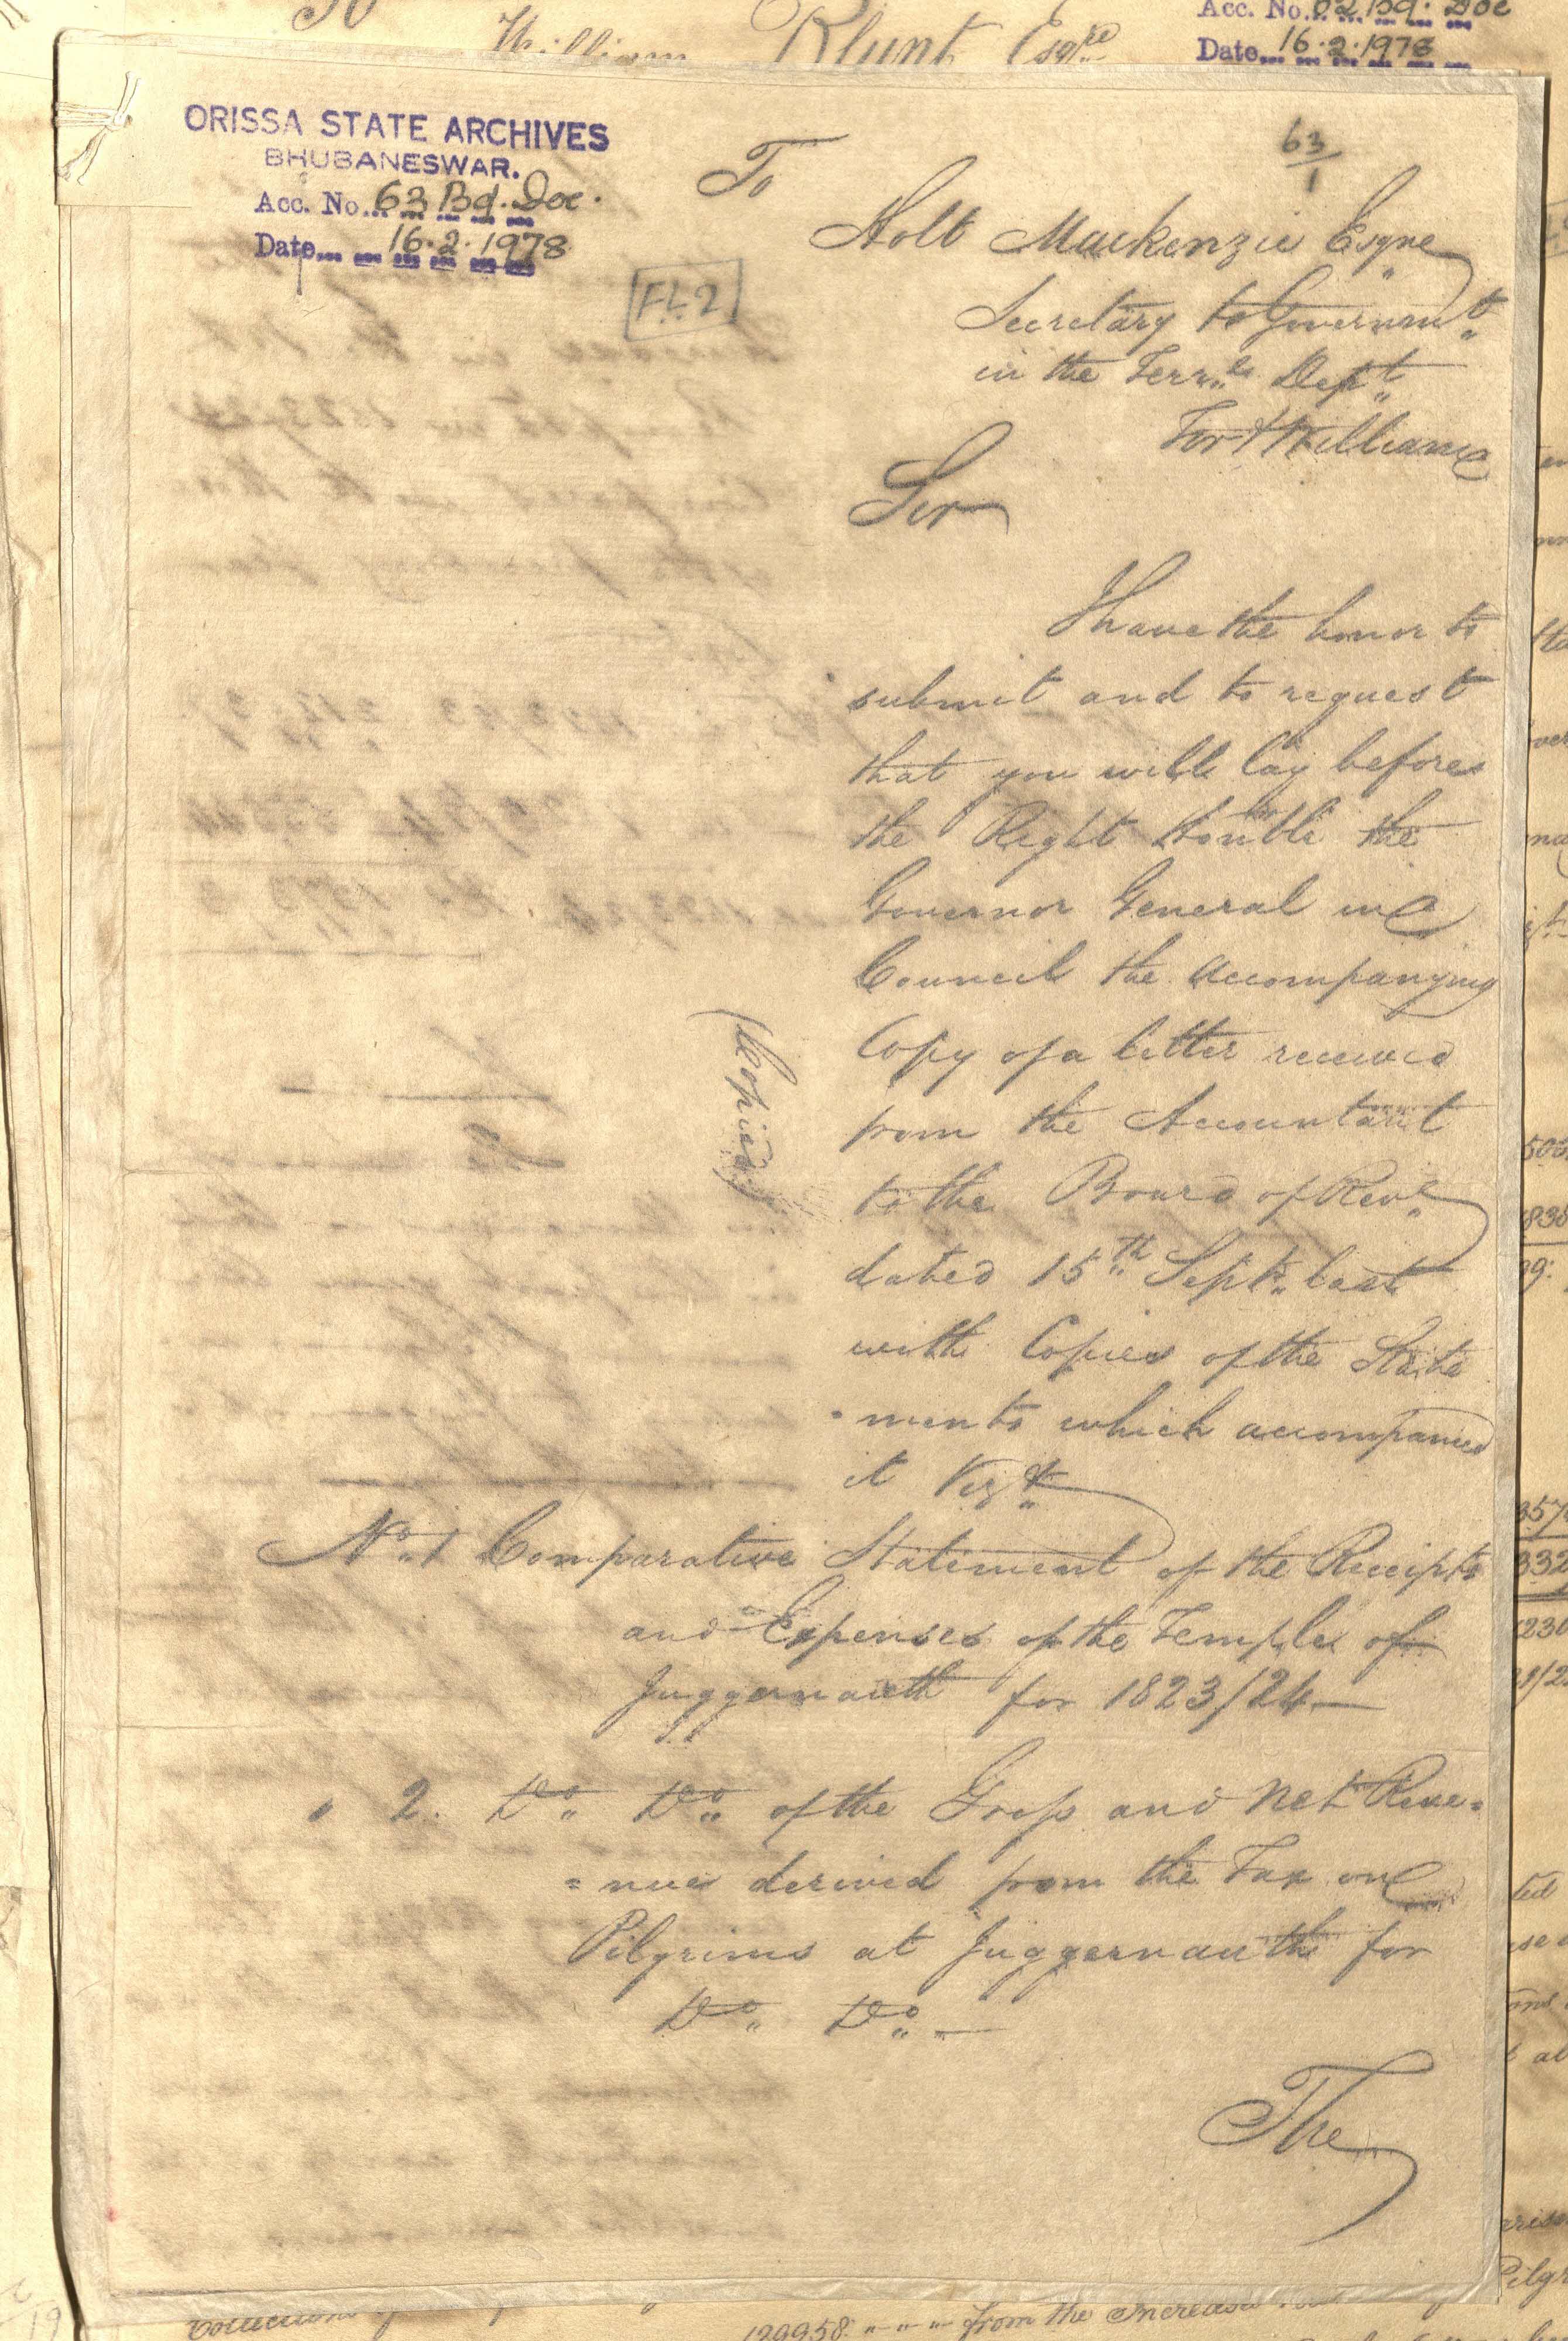 William Blunt Esqre
Acc. No. 62 Bd. Doc
Date 16.2.1978
ORISSA STATE ARCHIVES
BHUBANESWAR.
Acc. No. 63 Bd. Doc.
Date 16.2.1978
63/1
FL 2
To
Holt Mackenzie Esqre
Secretary to Governmt
in the Terrl Dept
Fort William
Sir
I have the honor to
submit and to request
that you will lay before
the Right Honble the
Governor General in
Council the accompanying
Copy of a letter received
from the Accountant
to the Board of Reve
dated 15th Septr last
with Copies of the State
-ments which accompanied
it Vizt
Copied
No. 1 Comparative Statement of the Receipts
and Expenses of the Temple of
Juggernauth for 1823/24—
" 2. Do Do of the Gross and Net Reve=
=nue derived from the Tax on
Pilgrims at Juggernauth for
Do Do —
The
129958 " " " from the Increased